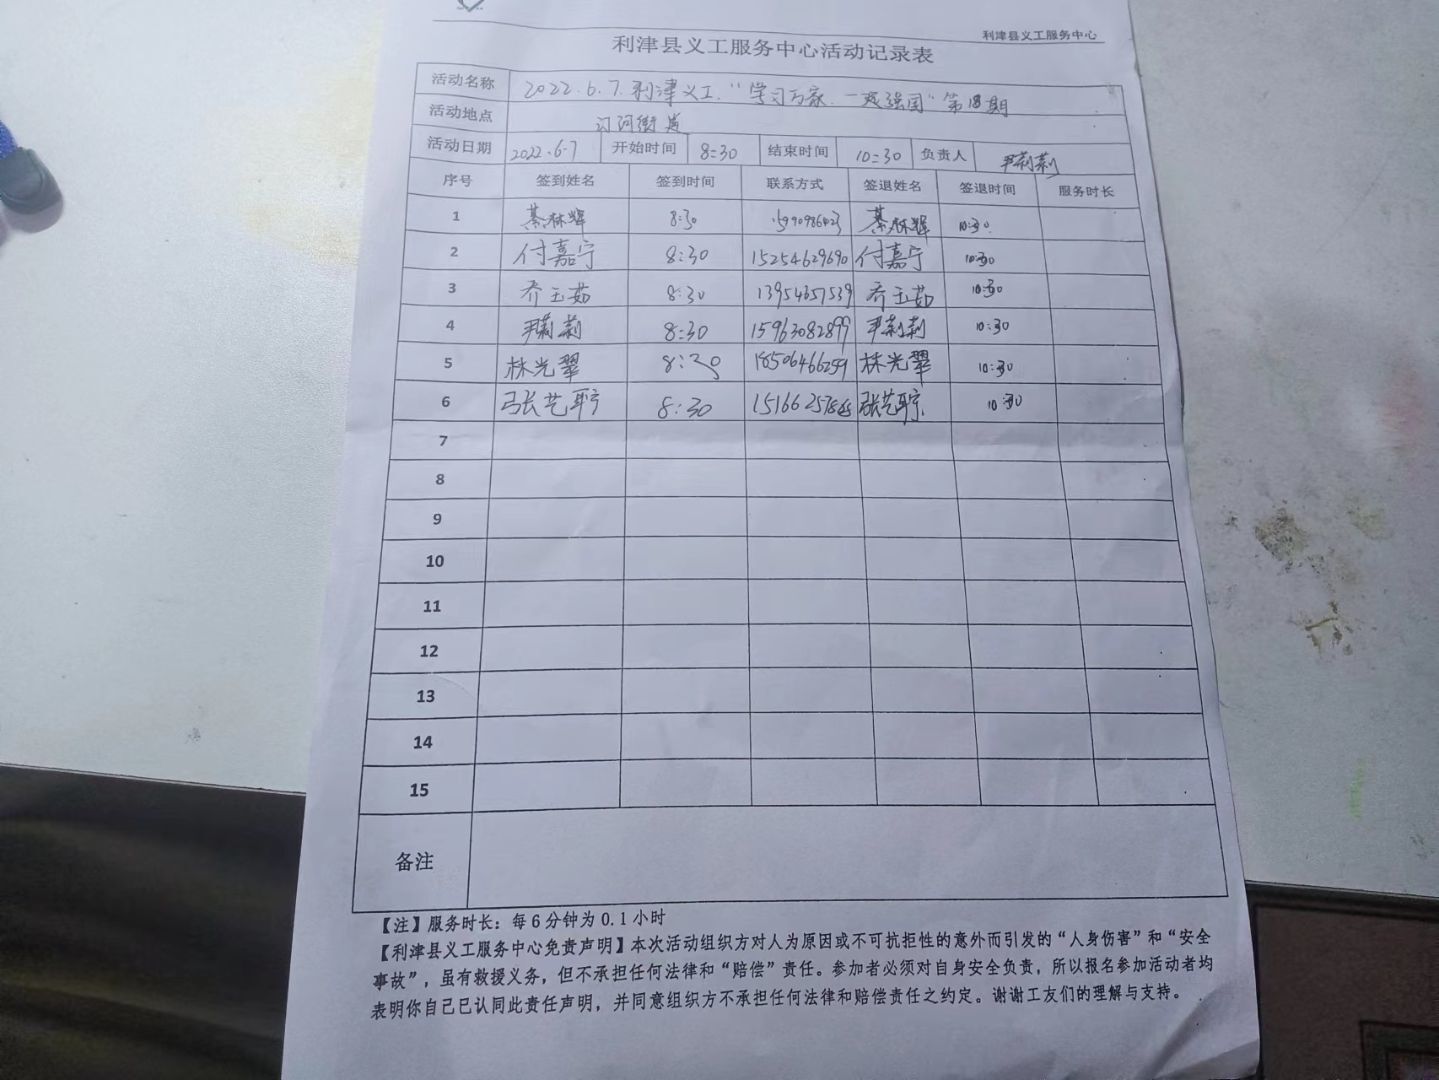 利津县义工服务中心
利津县义工服务中心活动记录表
活动名称 2022.6.7.利津义工."学习万家.一战强国"第18期
活动地点 汀河街道
活动日期 2022.6.7 开始时间 8:30 结束时间 10:30 负责人 尹莉莉
序号 签到姓名 签到时间 联系方式 签退姓名 签退时间 服务时长
1 綦林辉 8:30 綦林辉 10:30
2 付嘉宁 8:30 15254629690 付嘉宁 10:30
3 乔玉茹 8:30 13954657539 乔玉茹 10:30
4 尹莉莉 8:30 15963082899 尹莉莉 10:30
5 林光翠 8:30 18506466259 林光翠 10:30
6 张艺聍 8:30 张艺聍 10:30
7
8
9
10
11
12
13
14
15
备注
【注】服务时长：每6分钟为0.1小时
【利津县义工服务中心免责声明】本次活动组织方对人为原因或不可抗拒性的意外而引发的“人身伤害”和“安全
事故”，虽有救援义务，但不承担任何法律和“赔偿”责任。参加者必须对自身安全负责，所以报名参加活动者均
表明你自己已认同此责任声明，并同意组织方不承担任何法律和赔偿责任之约定。谢谢工友们的理解与支持。